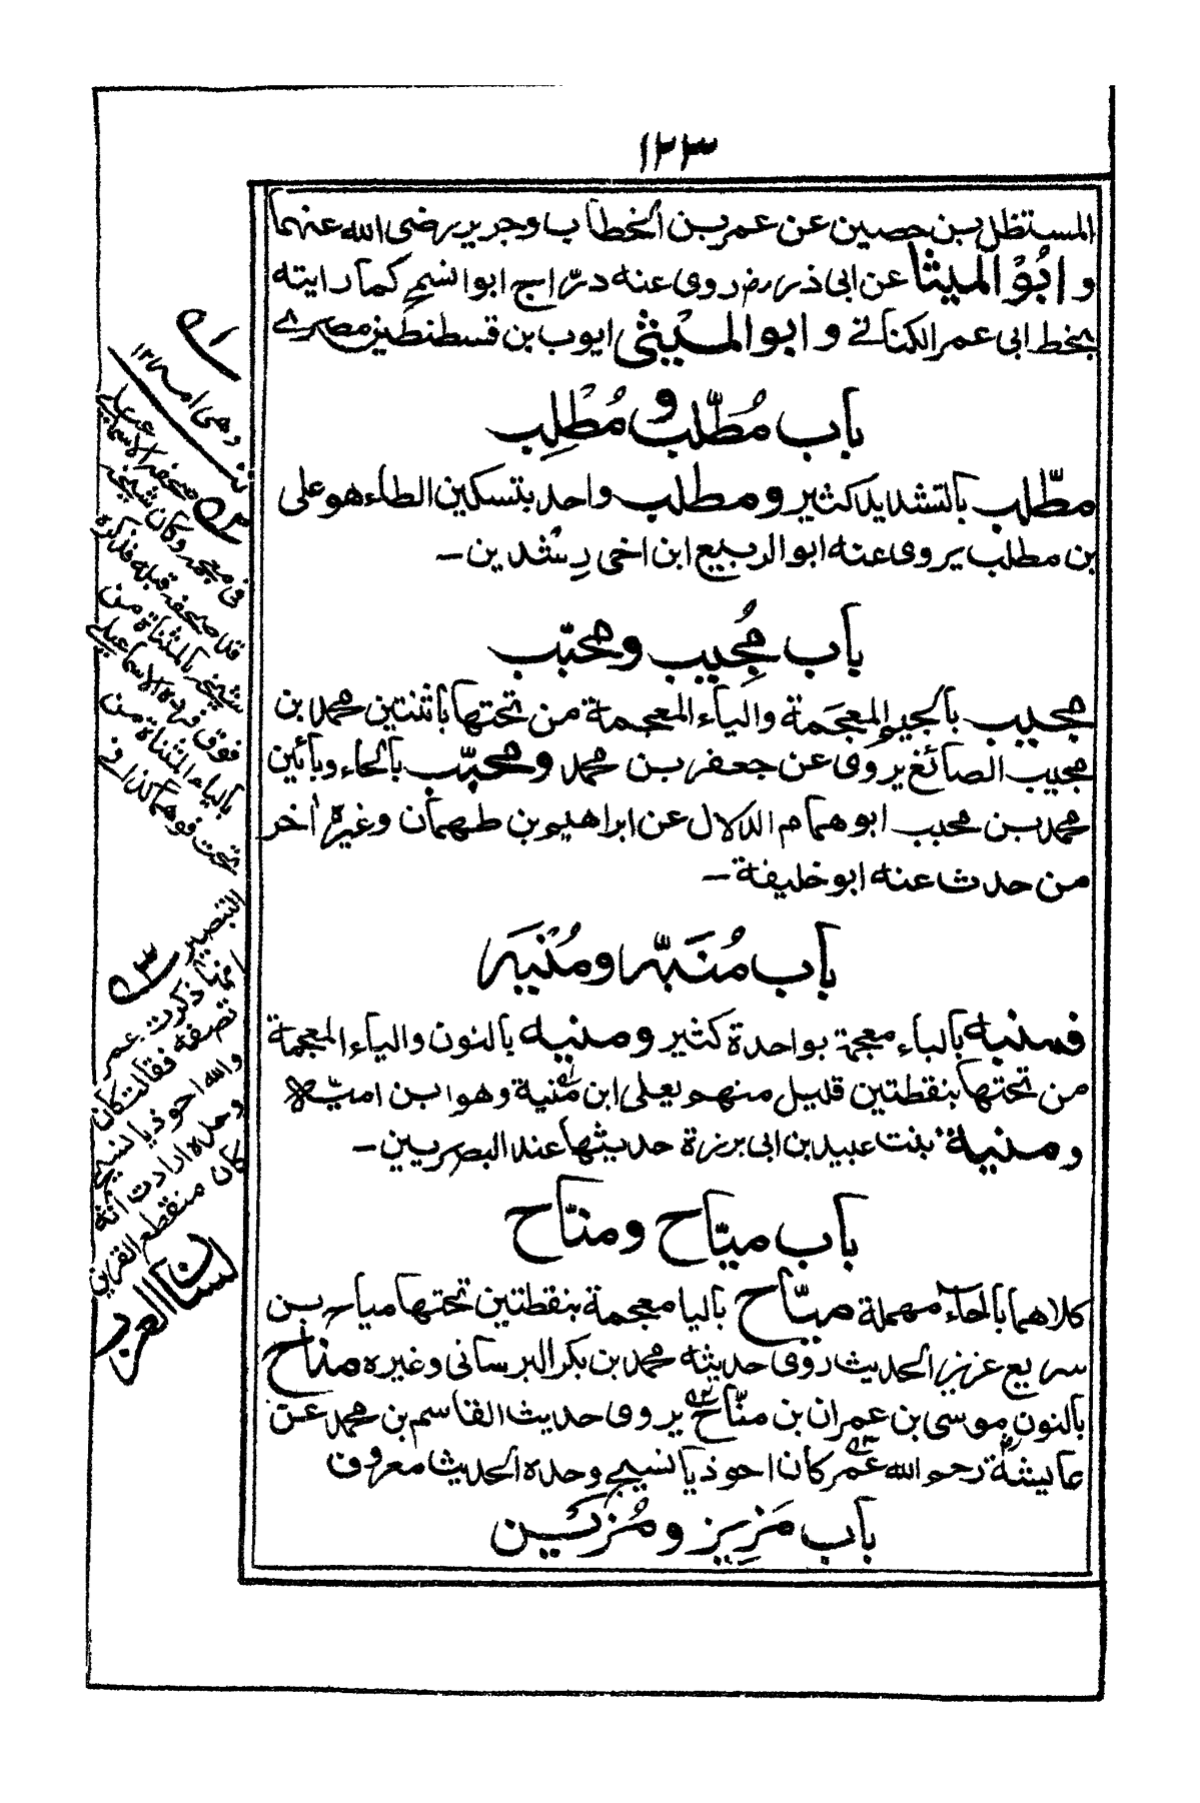 ١٢٣
المستظل بن حصين عن عمر بن الخطاب وجرير رضى الله عنهما
و ابُوْ الميثا عن ابى ذر رض روى عنه درّاج ابوا لسمح كما رايته
بخط ابى عمر الكنانے و ابو الميْثى ايوب بن قسطنطين مصرے
باب مُطّلب و مُطْلِب
مطّلب بالتشديد كثير و مطلب واحد بتسكين الطاء هو على
بن مطلب يروى عنه ابو الربيع ابن اخى رِشْدين ـ
باب مُجِيب و محبّب
مجيب بالجيم المعجَمة والياء المعجمة من تحتها باثنتين محمد بن
مجيب الصائغ يروى عن جعفر بن محمد و محبّب بالحاء وبائين
محمد بن محبب ابو همام الدلال عن ابراهيم بن طهمان وغيره اٰخر
من حدث عنه ابو خليفة ـ
باب مُنَبّه و مُنْيَه
فمنبه بالباء معجمة بواحدة كثير و منيه بالنون والياء المعجمة
من تحتها بنقطتين قليل منهم يعلى ابن مُنية وهو ابن اميّة
و منية بنت عبيد بن ابى برزة حديثها عند البصريين ـ
باب ميّاح و منّاح
كلاهما بالحاء مهملة ميّاح باليا معجمة بنقطتين تحتها مياح بن
سريع عزيز الحديث روى حديثه محمد بن بكر البرسانى وغيره مناح
بالنون موسى بن عمران بن منّاح يروى حديث القاسم بن محمد عن
عايشة رحم الله عُمر كان احوذيا نسيج وحده الحديث معروف
باب مَزِيز و مُزَيّن
وهى امه ١٢
صحفه الاسماعيلے
فى معجمه وكان شيخه
قد صحفه قبله فذكره
شيخه بالمثناة من
فوق فرده الاسماعيلے
بالياء المثناة من
تحت فوهما كذا فى
التبصير
ذكرت عمر
تصفه فقالت كان
والله احوذيا نسيج
وحده ارادت انه
كان منقطع القرين
لسان العرب